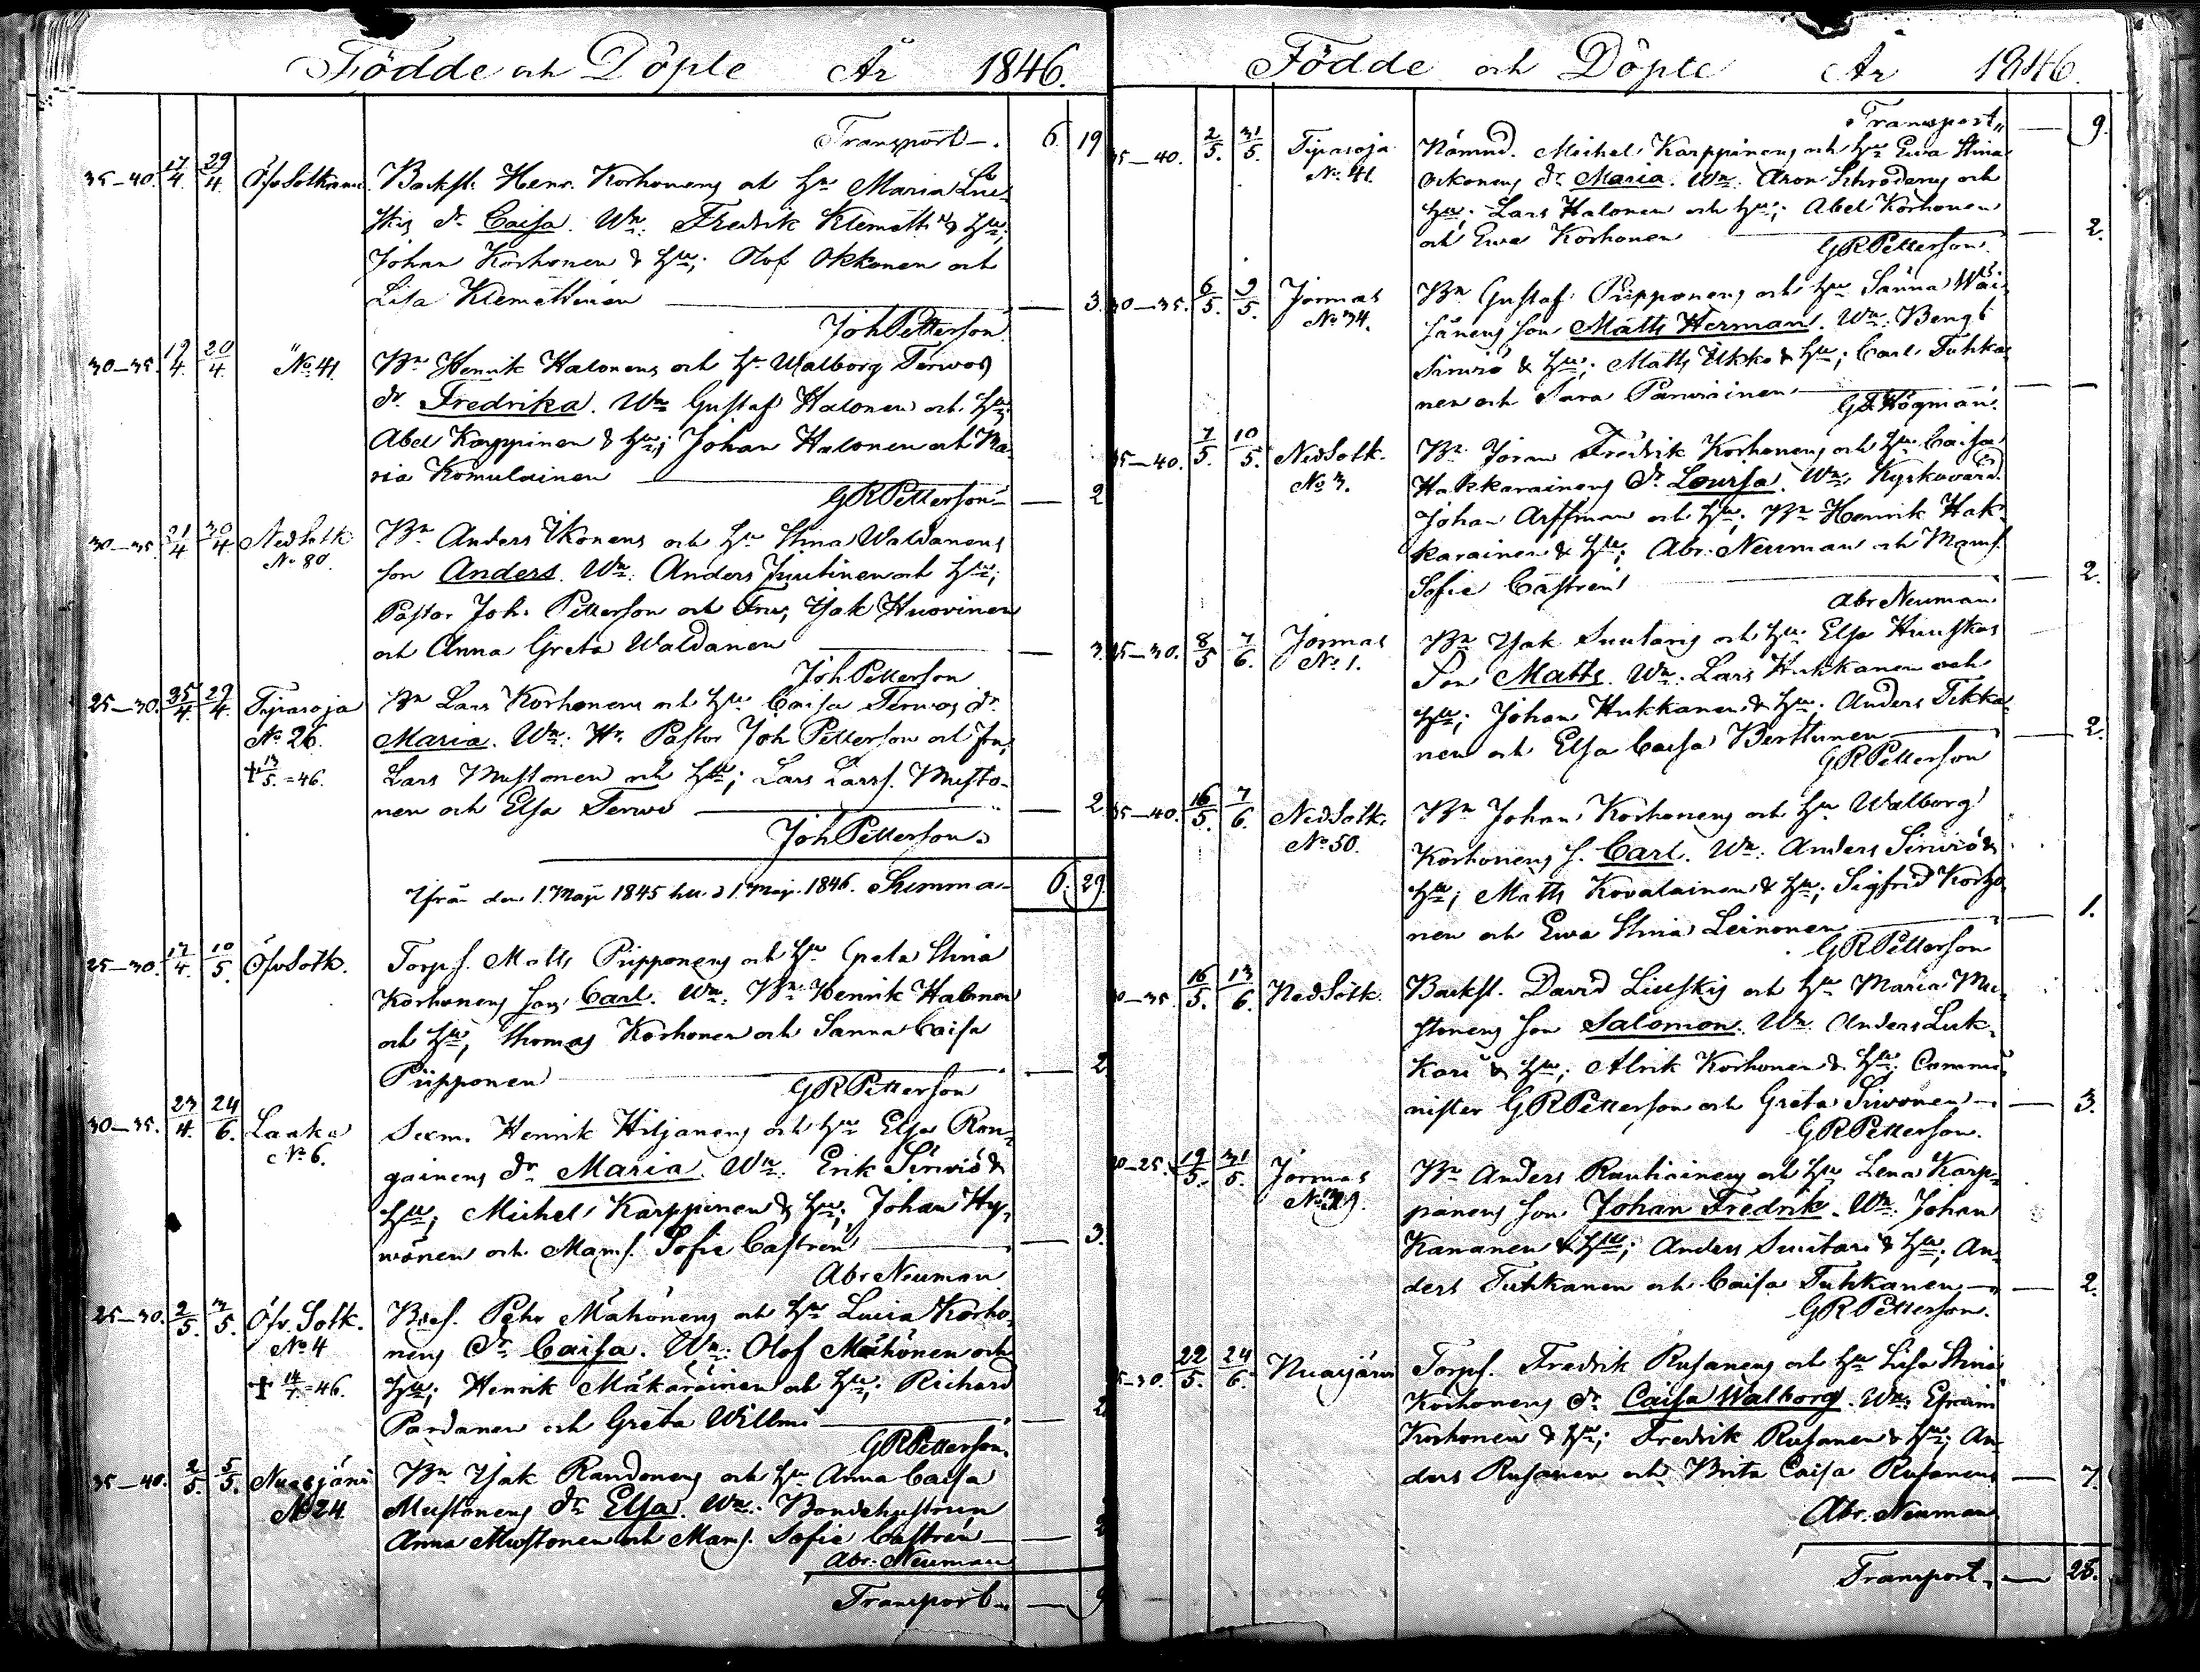 Födde och Döpte År 1846.
Transport 6 19
35-40. 17/4. 29/4. Öfv Sotkamo. Backst. Henr. Korhonens och Hu Maria Lju-
skis dr Caisa. Wn. Fredrik Klemetti & Hu;
Johan Korhonen & Hu; Olof Okkonen och
Lisa Klemettinen 3.
Joh Petterson
30-35. 19/4. 20/4 " No. 41. Bn Henrik Halonens och Hu Walborg Terwos
dr. Fredrika. Wn Gustaf Halonen och Hu;
Abel Karppinen & Hu; Johan Halonen och Ma-
ria Komulainen
GR Petterson 2
30-35 21/4 30/4 Ned Sotk Bn Anders Ikonens och Hu Stina Waldanens
No 80. son Anders. Wn. Anders Juutinen och Hu;
Pastor Joh. Petterson och Fru; Isak Huovinen
och Anna Greta Waldanen 3.
Joh Petterson
25-30. 25/4. 29/4. Tipasoja Bn Lars Korhonens och Hu Caisa Terwos dr.
No 26. Maria. Wn. Hr. Pastor Joh Petterson och Fru;
† 13/5. =46. Lars Mustonen och Hu; Lars Larss. Musto-
nen och Elsa Terwo 2
Joh Petterson.
Ifrån den 1 Maji 1845 till d 1 Maji 1846. Summa 6. 29.
25-30. 17/4. 10/5 Öfv Sotk. Torp. s. Matts Piipponens och Hu Greta Stina
Korhonens son Carl. Wn. Bn Henrik Halonen
och Hu; Thomas Korhonen och Sanna Caisa
Piipponen 2
GR Petterson
30-35. 23/4. 24/6. Laaka Sexm. Henrik Hiljanens och Hu Elsa Ron-
No 6. gainens dr Maria. Wn. Erik Sirviö &
Hu; Michel Karppinen & Hu; Johan Hy-
wönen och Mams. Sofie Castren 3.
Abr Neuman
25-30. 2/5. 3/5. Öfv. Sotk. Bref. Pehr Mähönens och Hu Lucia Korho-
No 4 nens dr Caisa. Wn. Olof Mähönen och
† 14/7 =46. Hu; Henrik Mäkäräinen och Hu; Richard
Pardanen och Greta Willmi 2
GR Petterson.
35-40. 2/5. 5/5. Nuasjärvi Bn Isak Randonens och Hu Anna Caisa
No 24. Mustonens dr Elsa. Wn. Bondehustrun
Anna Mustonen och Mams. Sofie Castrén 2
Abr. Neuman
Transport 9
Födde och Döpte År 1846.
Transport 9.
35-40. 2/5. 31/5. Tipasoja Nämnd. Michel Karppinens och Hu Ewa Stina
No. 41. Ockonens dr Maria. Wn. Aron Schroderus och
Hu; Lars Halonen och Hu; Abel Korhonen
och Ewa Korhonen 2.
GR Petterson.
30-35. 6/5. 9/5. Jormas Bn Gustaf Piipponens och Hu Sanna Wäi-
No 34. sänens son Matts Herman. Wn. Bengt
Sirviö & Hu; Matts Ukko & Hu; Carl Tuhka-
nen och Sara Parwiainen
G. F. Högman.
35-40. 7/5. 10/5. Ned Sotk. Bn Jöran Fredrik Korhonens och Hu Caisa
No 3. Hakkarainens dr Lovisa. Wn. Kyrkovärd.
Johan Arffman och Hu; Bn Henrik Hak-
karainen & Hu; Abr. Neuman och Mams.
Sofie Castren 2.
Abr Neuman.
25-30. 8/5 7/6. Jormas Bn Isak Suutaris och Hu Elsa Huuskos
No 1. Son Matts. Wn. Lars Hukkanen och
Hu; Johan Hukkanen & Hu. Anders Tikka-
nen och Elsa Caisa Berttunen 2.
GR Petterson
35-40. 16/5. 7/6. Ned Sotk. Bn Johan Korhonens och Hu Walborg
No 50. Korhonens s. Carl. Wn. Anders Sirviö &
Hu; Matts Kovalainen & Hu; Sigfrid Korho-
nen och Ewa Stina Leinonen 1.
GR Petterson
30-35. 16/5. 13/6. Ned Sotk. Backst. David Liuskis och Hu Maria Mu-
stonens son Salomon. Wn. Anders Luk-
kari & Hu; Alrik Korhonen & Hu; Commi-
nister GR Petterson och Greta Siwonen 3.
GR Petterson.
20-25. 19/5. 31/5. Jormas Bn Anders Rautiainens och Hu Lena Karp-
pinens son Johan Fredrik. Wn. Johan
Kananen & Hu; Anders Suutari & Hu; An-
ders Tuhkanen och Caisa Tuhkanen 2.
GR Petterson.
25-30. 22/5. 24/6. Nuasjärvi Torps. Fredrik Rusanens och Hu Lisa Stina
Korhonens dr Caisa Walborg. Wn. Efraim
Korhonen & Hu; Fredrik Rusanen & Hu; An-
ders Rusanen och Brita Caisa Rusanens 7.
Abr. Neuman
Transport